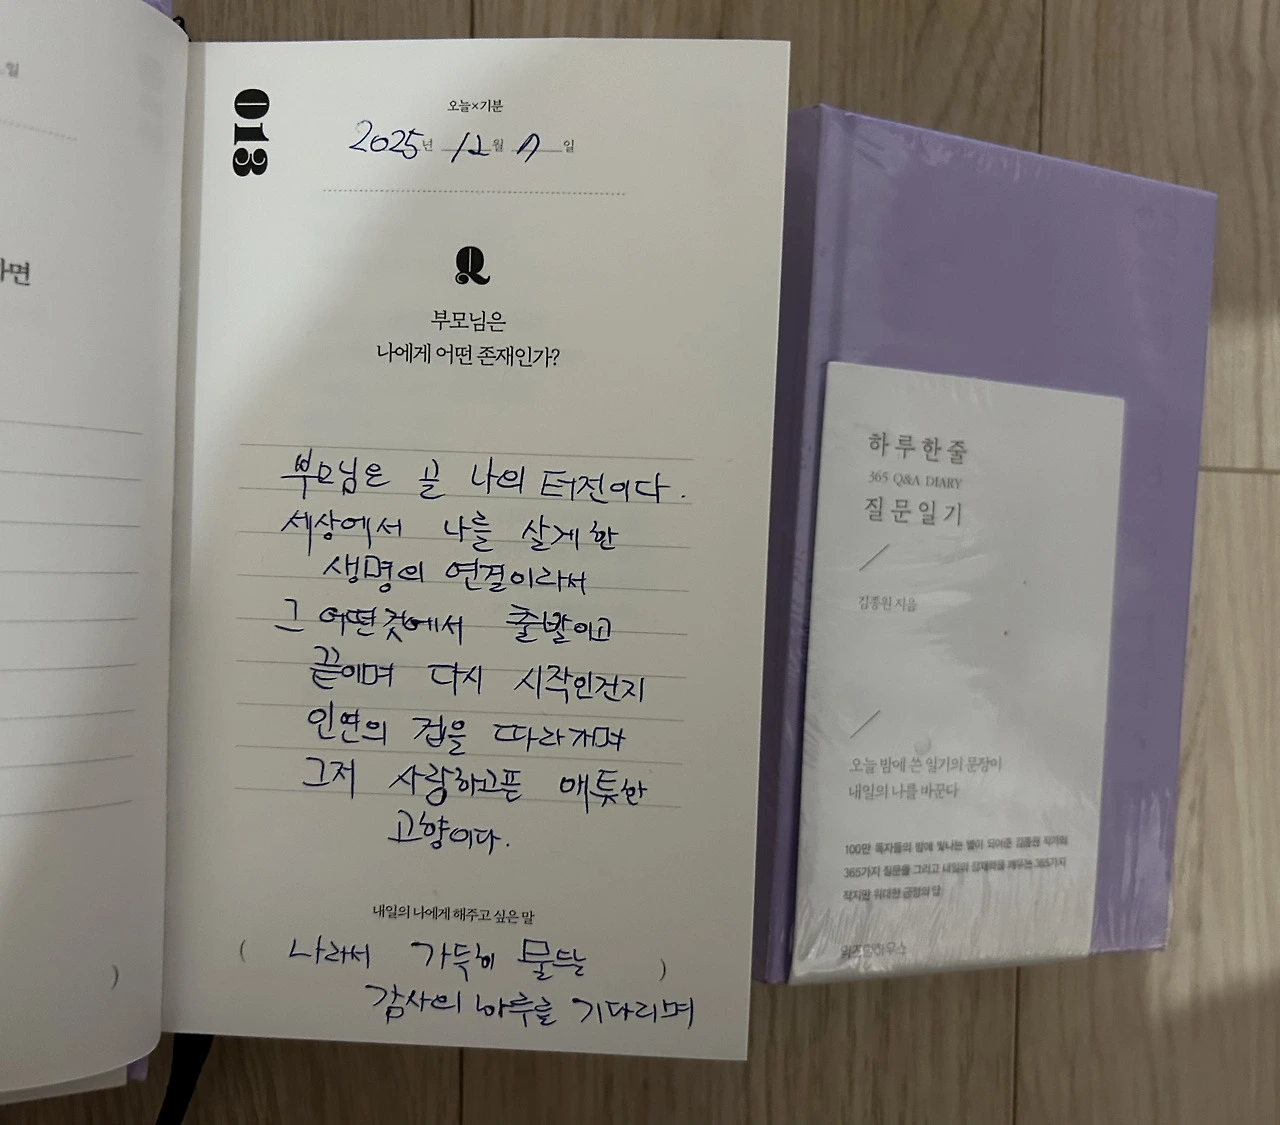 일
라면
013
오늘×기분
2025년 12월 7일
Q
부모님은
나에게 어떤 존재인가?
부모님은 곧 나의 터전이다.
세상에서 나를 살게한
생명의 연결이라서
그 어떤것에서 출발이고
끝이며 다시 시작인건지
인연의 겁을 따라가며
그저 사랑하고픈 애틋한
고향이다.
내일의 나에게 해주고 싶은 말
( 나라서 가득히 물드는 )
감사의 하루를 기다리며
)
하루한줄
365 Q&A DIARY
질문일기
김종원 지음
오늘 밤에 쓴 일기의 문장이
내일의 나를 바꾼다
100만 독자들의 밤에 빛나는 별이 되어준 김종원 작가의
365가지 질문들 그리고 내일의 잠재력을 깨우는 365가지
작지만 위대한 긍정의 답
위즈덤하우스